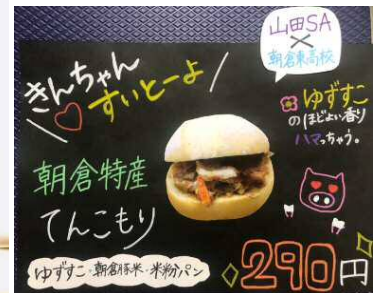 山田SA
×
朝倉東高校
きんちゃん
すいとーよ
ゆずすこ
のほどよい香り
ハマっちゃう。
朝倉特産
てんこもり
ゆずすこ・朝倉豚米・米粉パン
290円